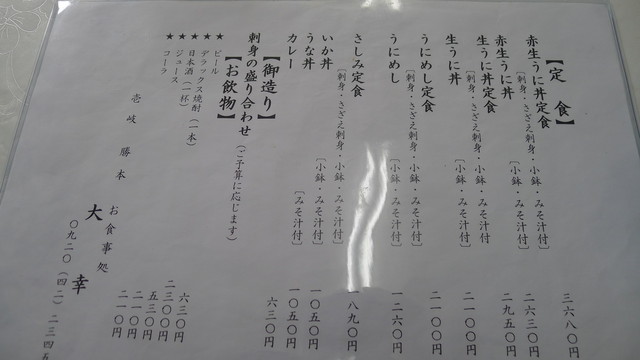 【定食】
赤生うに丼定食
［刺身・さざえ刺身・小鉢・みそ汁付］
三六八〇円
赤生うに丼
［小鉢・みそ汁付］
二六三〇円
生うに丼定食
［刺身・さざえ刺身・小鉢・みそ汁付］
二九五〇円
生うに丼
［小鉢・みそ汁付］
二一〇〇円
うにめし定食
［刺身・さざえ刺身・小鉢・みそ汁付］
二一〇〇円
うにめし
［小鉢・みそ汁付］
一二六〇円
さしみ定食
［刺身・さざえ刺身・小鉢・みそ汁付］
一八九〇円
いか丼
［小鉢・みそ汁付］
一〇五〇円
うな丼
［みそ汁付］
一〇五〇円
カレー
六三〇円
【御造り】
刺身の盛り合わせ（ご予算に応じます）
【お飲物】
★ビール
六三〇円
★デラックス焼酎（一本）
二三〇〇円
★日本酒（一杯）
五三〇円
★ジュース
二一〇円
★コーラ
二一〇円
壱岐勝本
お食事処
大幸
〇九二〇（四二）二三四五